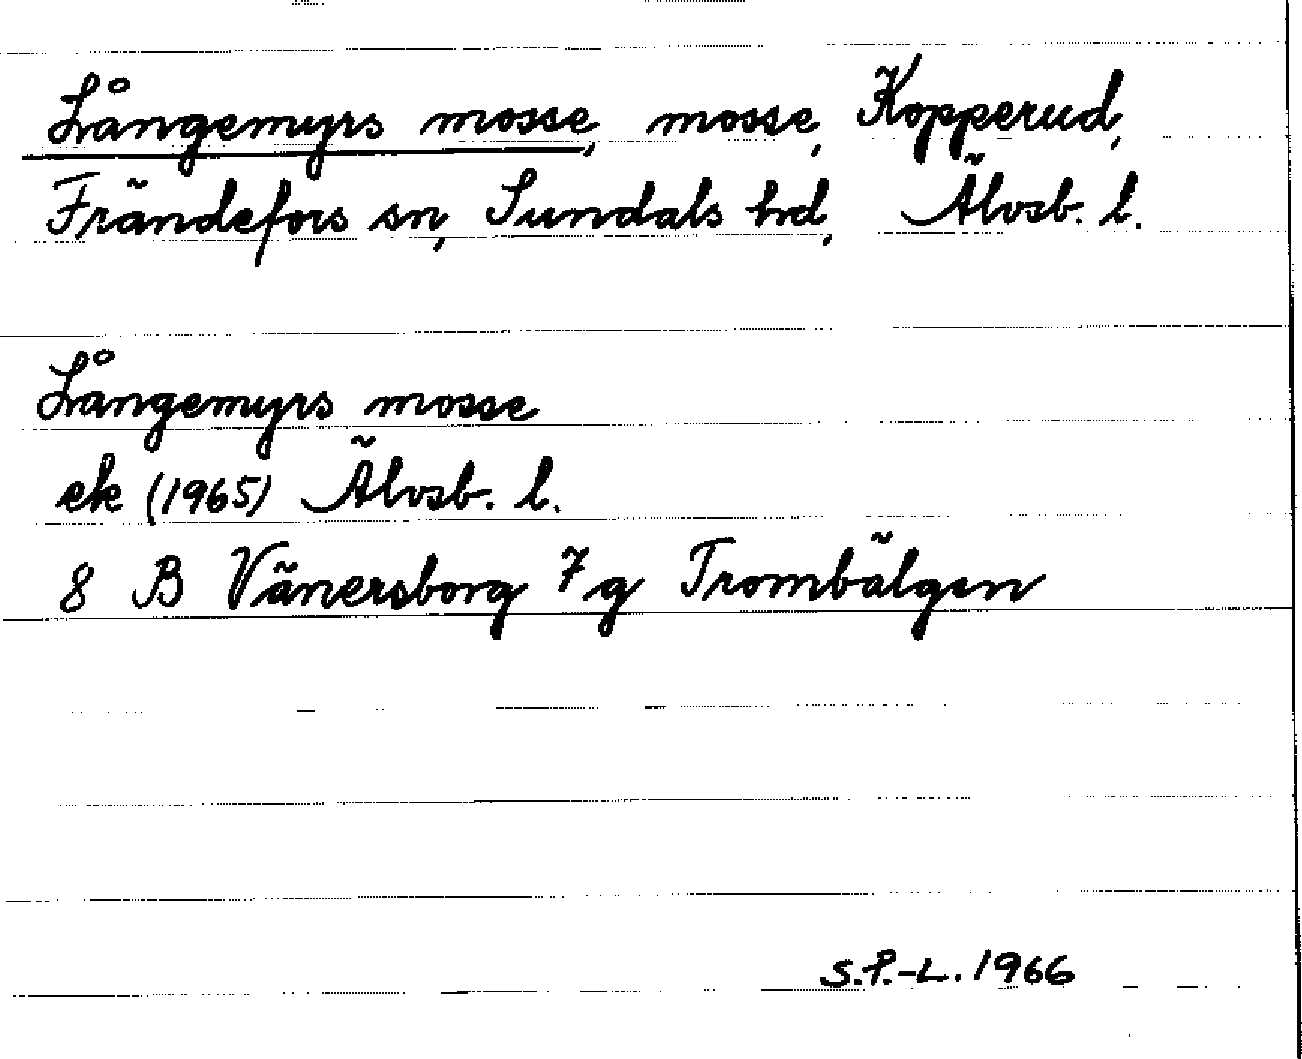 Långemyrs mosse, mosse, Kopperud,
Frändefors sn, Sundals hd, Älvsb. l.
Långemyrs mosse
ek (1965) Älvsb. l.
8 B Vänersborg 7 g Trombälgen
S.P.-L. 1966